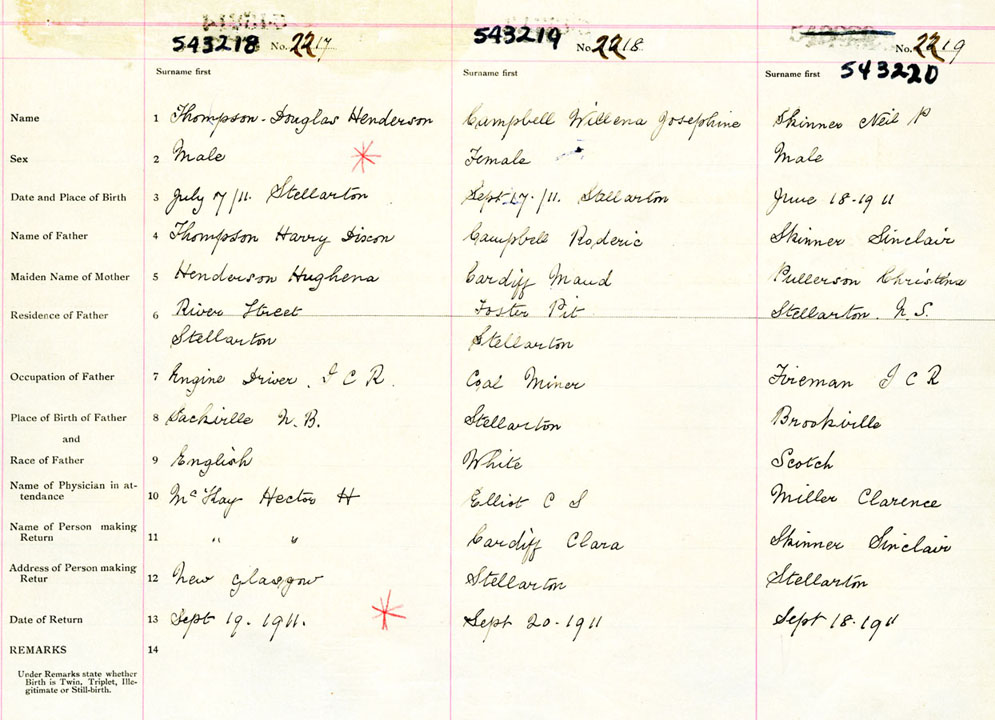 543218 No. 2217 543219 No. 2218 No. 2219
Surname first Surname first Surname first 543220
Name 1 Thompson - Douglas Henderson Campbell Willena Josephine Skinner Neil P
Sex 2 Male Female Male
Date and Place of Birth 3 July 7/11. Stellarton Sept 17./11. Stellarton June 18-1911
Name of Father 4 Thompson Harry Dixon Campbell Roderic Skinner Sinclair
Maiden Name of Mother 5 Henderson Hughena Cardiff Maud Christina
Residence of Father 6 River Street Foster Pit Stellarton. N.S.
Stellarton Stellarton
Occupation of Father 7 Engine Driver. I C R. Coal Miner Fireman I C R
Place of Birth of Father 8 Sackville N.B. Stellarton Brookville
and
Race of Father 9 English White Scotch
Name of Physician in at-
tendance 10 McKay Hector H Elliot C S Miller Clarence
Name of Person making
Return 11 " " Cardiff Clara Skinner Sinclair
Address of Person making
Retur 12 New Glasgow Stellarton Stellarton
Date of Return 13 Sept 19. 1911. Sept 20-1911 Sept 18-1911
REMARKS 14
Under Remarks state whether
Birth is Twin, Triplet, Ille-
gitimate or Still-birth.